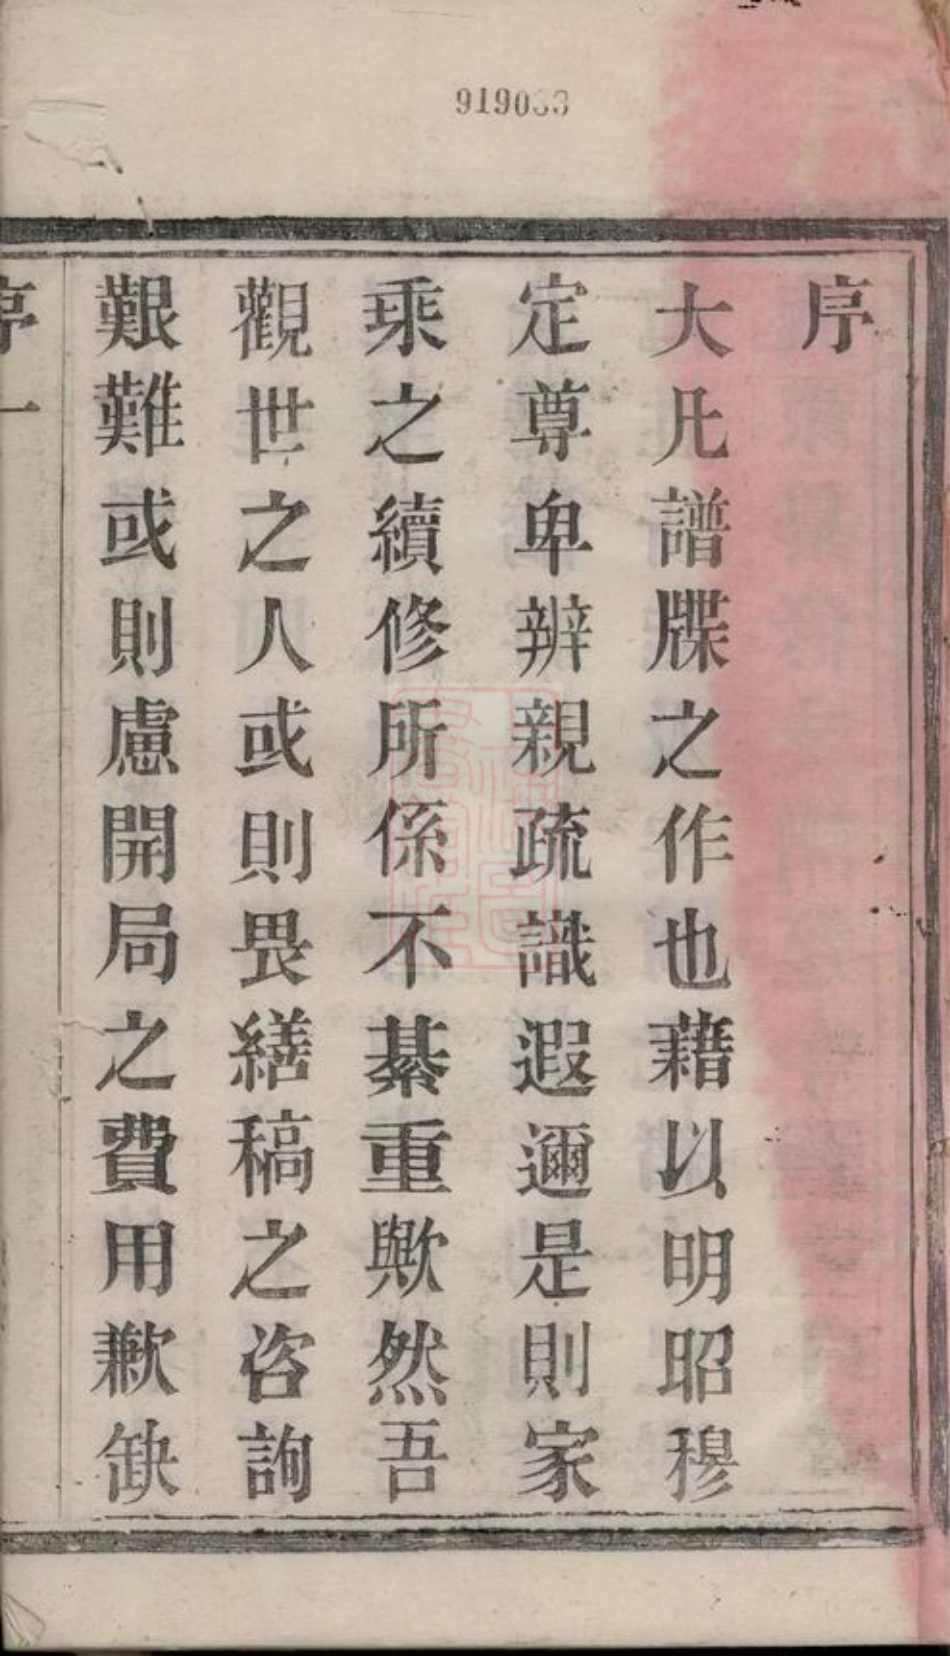 919033
序
大凡譜牒之作也藉以明昭穆
定尊卑辨親疏識遐邇是則家
乘之續修所係不綦重歟然吾
觀世之人或則畏繕稿之咨詢
艱難或則慮開局之費用歉缺
序 一